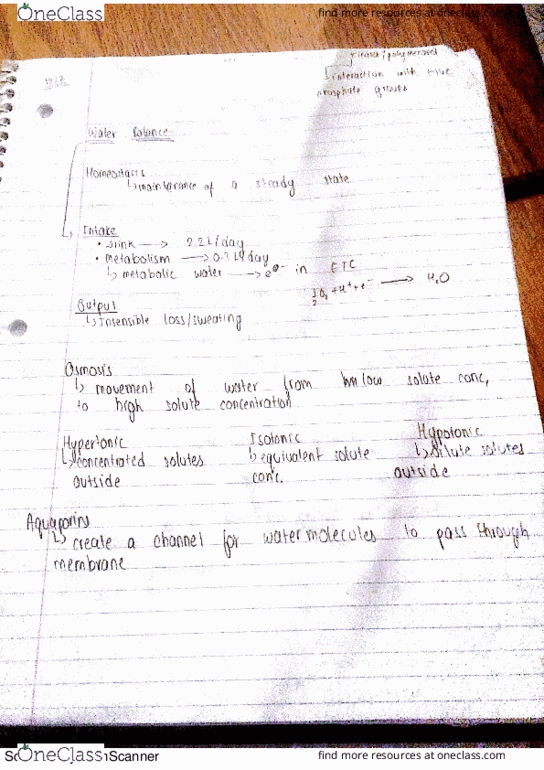 OneClass
find more resources at oneclass.com
kinases/polymerases
interaction with
phosphate groups
Water Balance
Homeostasis
↳ maintenance of a steady state
Intake
• drink → 2.2L/day
• metabolism → 0.3L/day
↳ metabolic water → e⁻ in ETC
½O₂ + H⁺ + e⁻ → H₂O
Output
↳ Insensible loss/sweating
Osmosis
↳ movement of water from low solute conc,
to high solute concentration
Hypertonic Isotonic Hypotonic
↳ concentrated solutes ↳ equivalent solute ↳ dilute solutes
outside conc. outside
Aquaporins
↳ create a channel for water molecules to pass through
membrane
OneClass Scanner
find more resources at oneclass.com